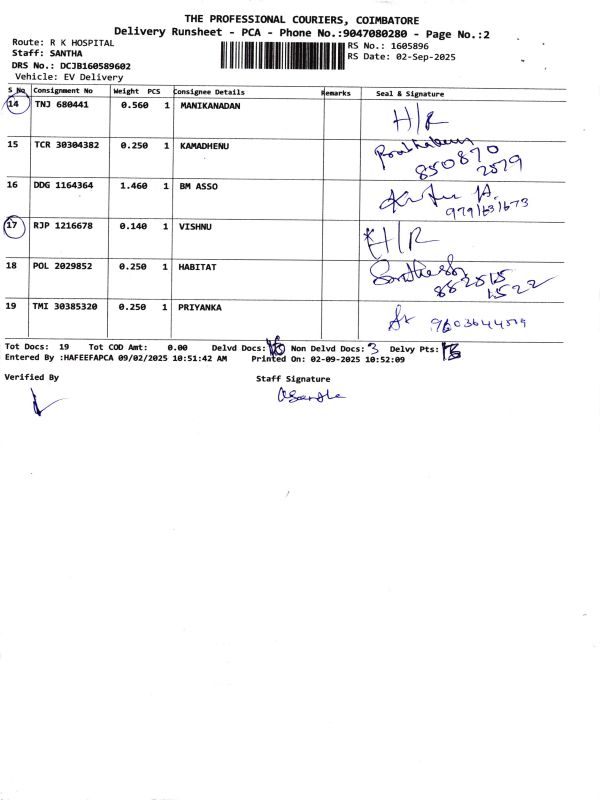 THE PROFESSIONAL COURIERS, COIMBATORE
Delivery Runsheet - PCA - Phone No.:9047080280 - Page No.:2
Route: R K HOSPITAL
RS No.: 1605896
Staff: SANTHA
RS Date: 02-Sep-2025
DRS No.: DCJB160589602
Vehicle: EV Delivery
S No Consignment No Weight PCS Consignee Details Remarks Seal & Signature
14 TNJ 680441 0.560 1 MANIKANADAN H/R
15 TCR 30304382 0.250 1 KAMADHENU
850870
2579
16 DDG 1164364 1.460 1 BM ASSO
9791631673
17 RJP 1216678 0.140 1 VISHNU H/R
18 POL 2029852 0.250 1 HABITAT
882515
1522
19 TMI 30385320 0.250 1 PRIYANKA
Tot Docs: 19 Tot COD Amt: 0.00 Delvd Docs: Non Delvd Docs: 3 Delvy Pts:
Entered By :HAFEEFAPCA 09/02/2025 10:51:42 AM Printed On: 02-09-2025 10:52:09
Verified By Staff Signature